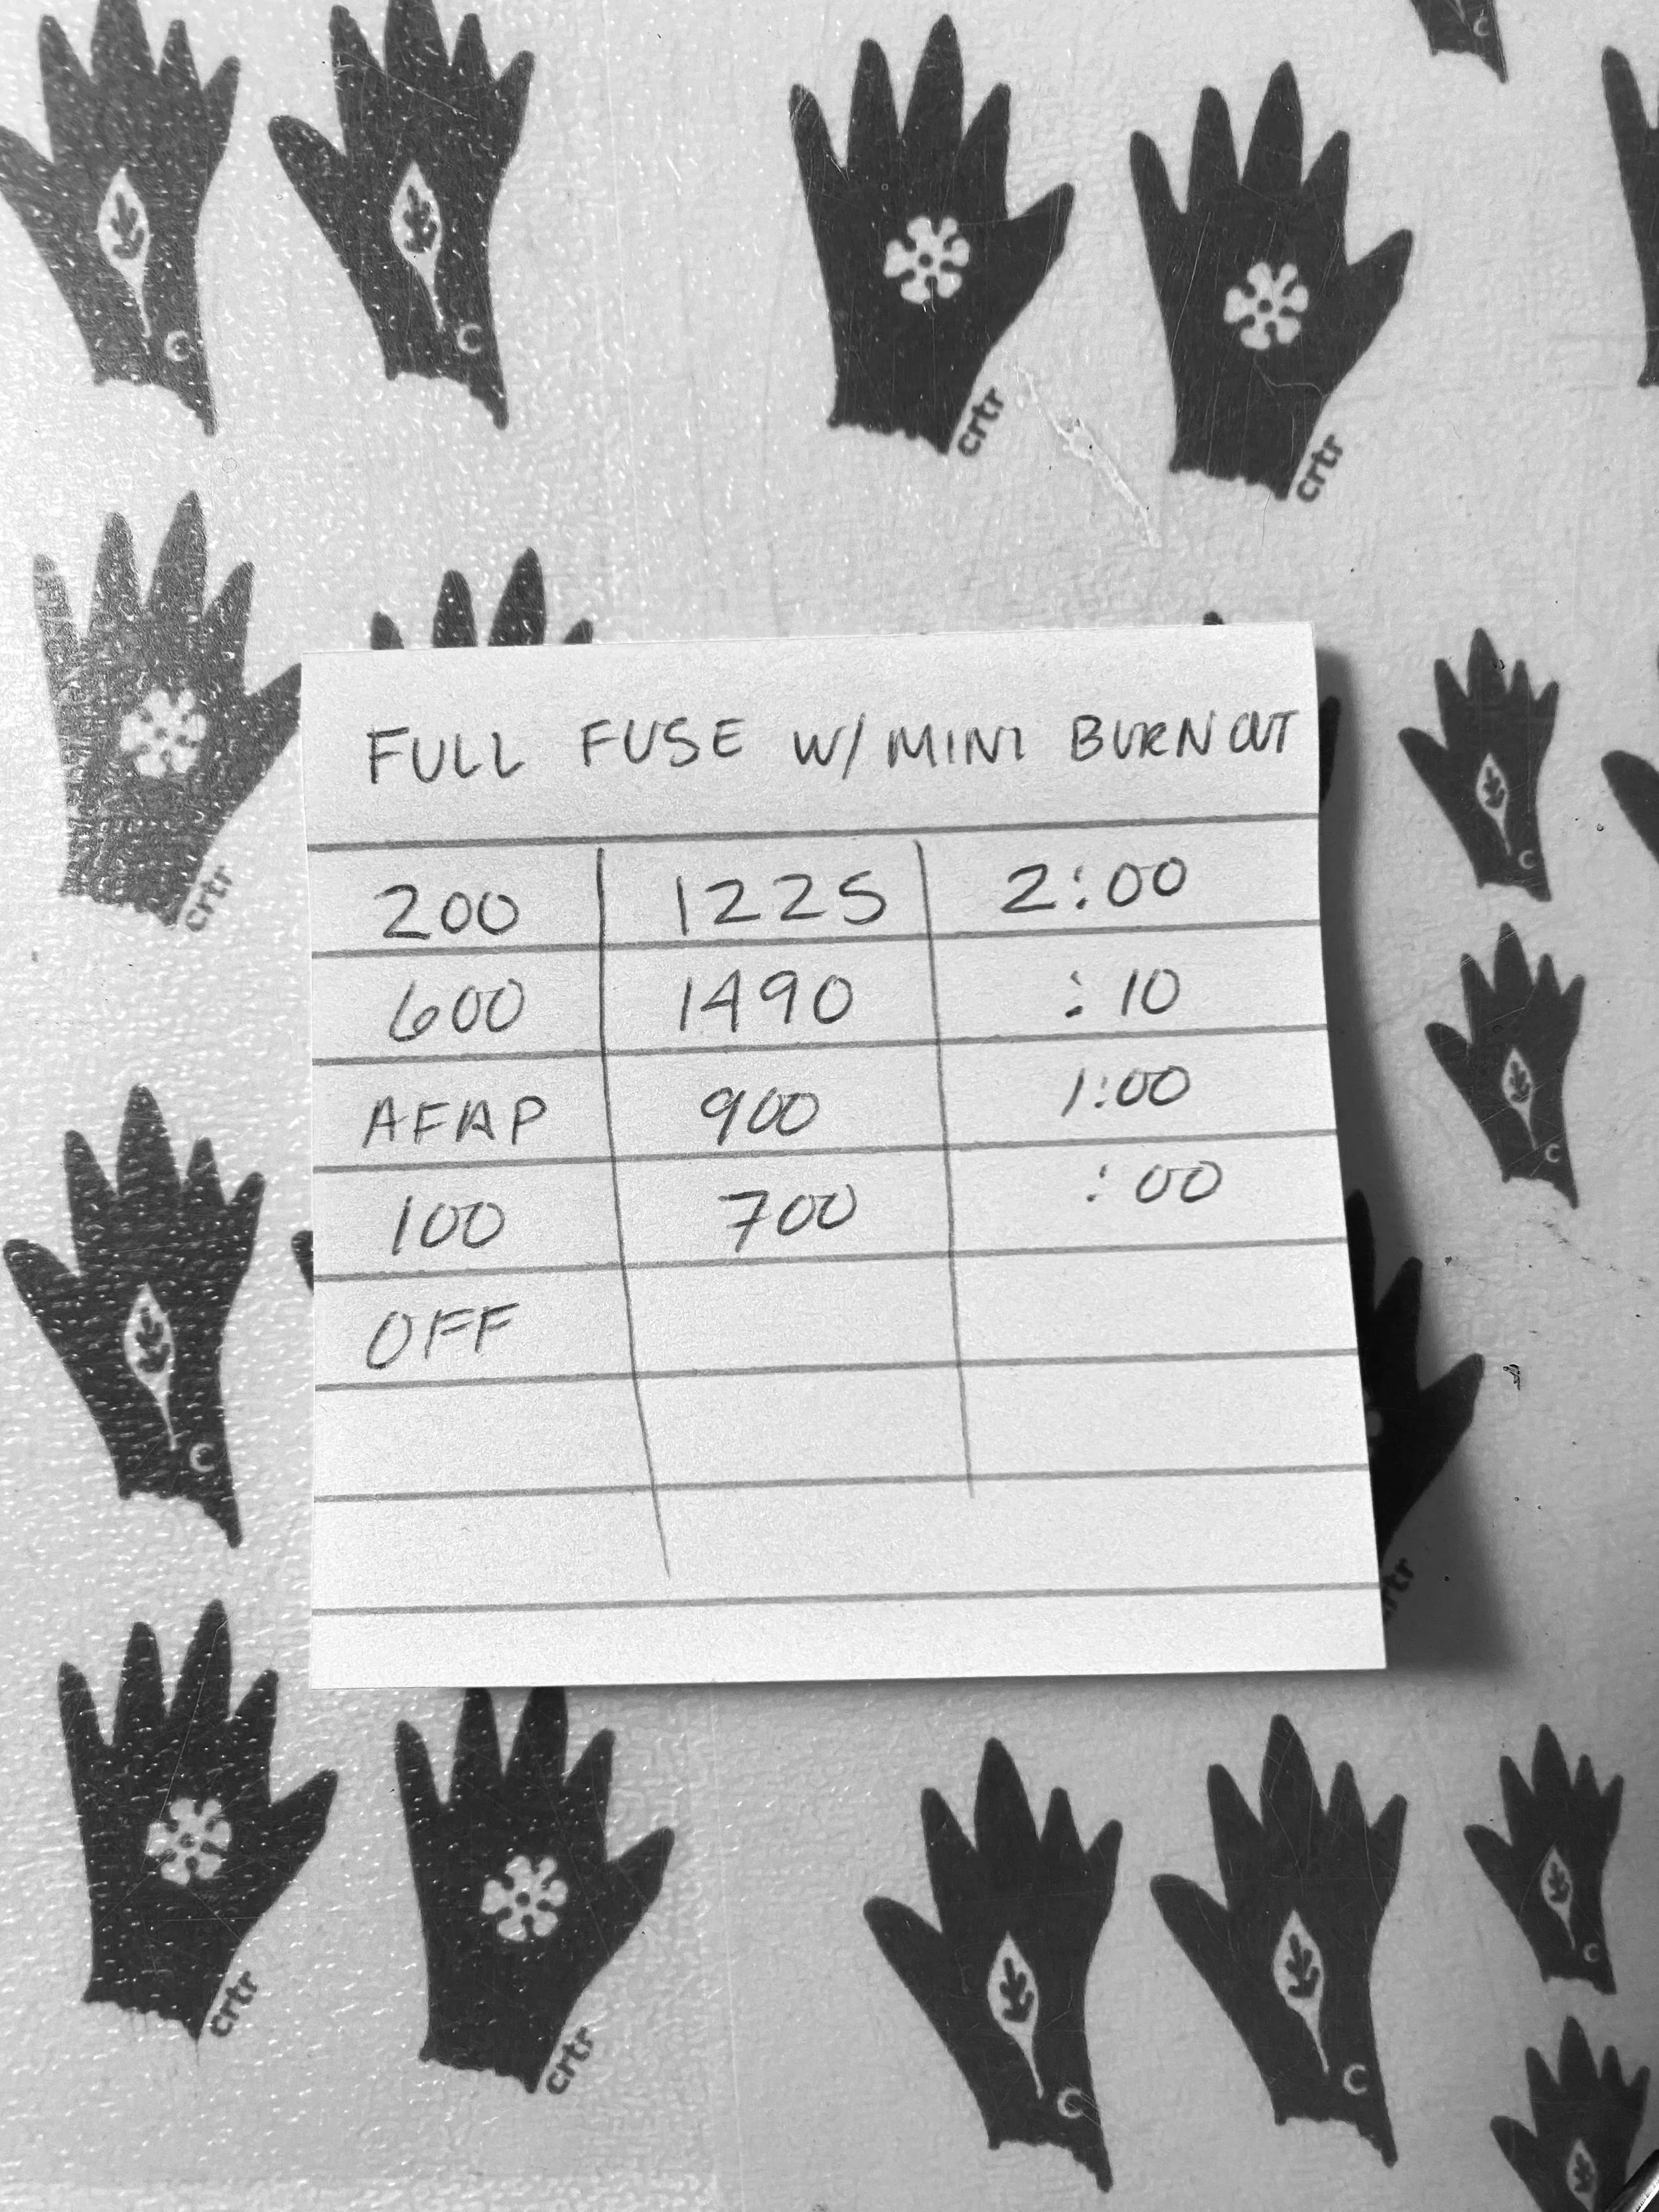 C
C
C
crtr
crtr
crtr
FULL FUSE W/ MINI BURNOUT
200 1225 2:00
600 1490 :10
AFAP 900 1:00
100 700 :00
OFF
C
C
C
crtr
crtr
crtr
C
C
C